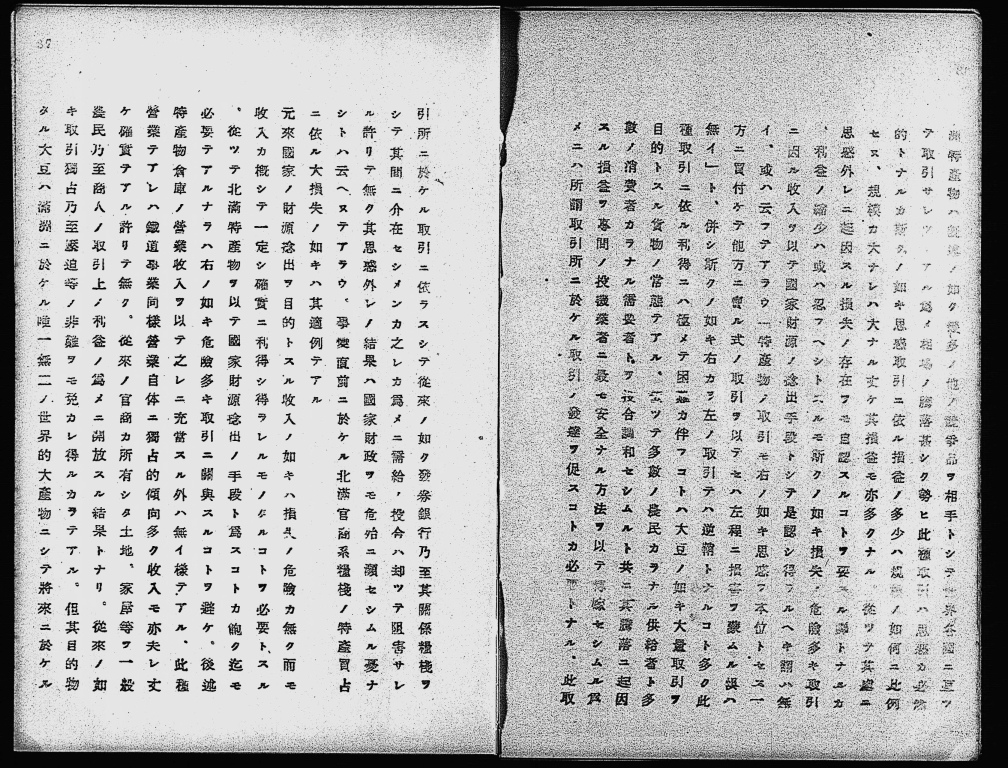 洲特產物ハ前述ノ如ク幾多ノ他ノ競爭品ヲ相手トシテ世界各國ニ亘ツ
テ取引サレツヽアル爲メ相場ノ騰落甚シク勢ヒ此種取引ハ思惑カ必然
的トナルカ斯クノ如キ思惑取引ニ依ル損益ノ多少ハ規模ノ如何ニ比例
セス、規模カ大ナレハ大ナル丈ケ其損益モ亦多クナル、從ツテ其處ニ
思惑外レニ起因スル損失ノ存在ヲモ自認スルコトヲ要スル譯トナルカ
、利益ノ縮少ハ或ハ忍フヘシトスルモ斯クノ如キ損失ノ危險多キ取引
ニ因ル收入ヲ以テ國家財源ノ捻出手段トシテ是認シ得ラルヘキ謂ハ無
イ、或ハ云フテアラウ「特產物ノ取引モ右ノ如キ思惑ヲ本位トセス一
方ニ買付ケテ他方ニ賣ル式ノ取引ヲ以テセハ左程ニ損害ヲ蒙ムル模ハ
無イ」ト、併シ斯クノ如キ右カラ左ノ取引テハ逆鞘トナルコト多ク此
種取引ニ依ル利得ニハ極メテ困難カ伴フコトハ大豆ノ如キ大量取引ヲ
目的トスル貨物ノ常態テアル、從ツテ多數ノ農民カラナル供給者ト多
數ノ消費者カラナル需要者トヲ投合調和セシムルト共ニ其騰落ニ起因
スル損益ヲ專門ノ投機業者ニ最モ安全ナル方法ヲ以テ轉嫁セシムル爲
メニハ所謂取引所ニ於ケル取引ノ發達ヲ促スコトカ必要トナル、此取
37
引所ニ於ケル取引ニ依ラスシテ從來ノ如ク發券銀行乃至其關係糧棧ヲ
シテ其間ニ介在セシメンカ之レカ爲メニ需給ノ投合ハ却ツテ阻害サレ
ル許リテ無ク其思惑外レノ結果ハ國家財政ヲモ危殆ニ瀕セシムル憂ナ
シトハ云ヘヌテアラウ、事變直前ニ於ケル北滿官商系糧棧ノ特產買占
ニ依ル大損失ノ如キハ其適例テアル
元來國家ノ財源捻出ヲ目的トスル收入ノ如キハ損失ノ危險カ無ク而モ
收入カ概シテ一定シ確實ニ利得シ得ラレルモノタルコトヲ必要トスル
。從ツテ北滿特產物ヲ以テ國家財源捻出ノ手段ト爲スコトカ飽ク迄モ
必要テアルナラハ右ノ如キ危險多キ取引ニ關與スルコトヲ避ケ。後述
特產物倉庫ノ營業收入ヲ以テ之レニ充當スル外ハ無イ樣テアル、此種
營業テアレハ鐵道事業同樣營業自体ニ獨占的傾向多ク收入モ亦夫レ丈
ケ確實テアル許リテ無ク。從來ノ官商カ所有シタ土地、家屋等ヲ一般
農民乃至商人ノ取引上ノ利益ノ爲メニ開放スル結果トナリ。從來ノ如
キ取引獨占乃至壓迫等ノ非難ヲモ免カレ得ルカラテアル。但其目的物
タル大豆ハ滿洲ニ於ケル唯一無二ノ世界的大產物ニシテ將來ニ於ケル